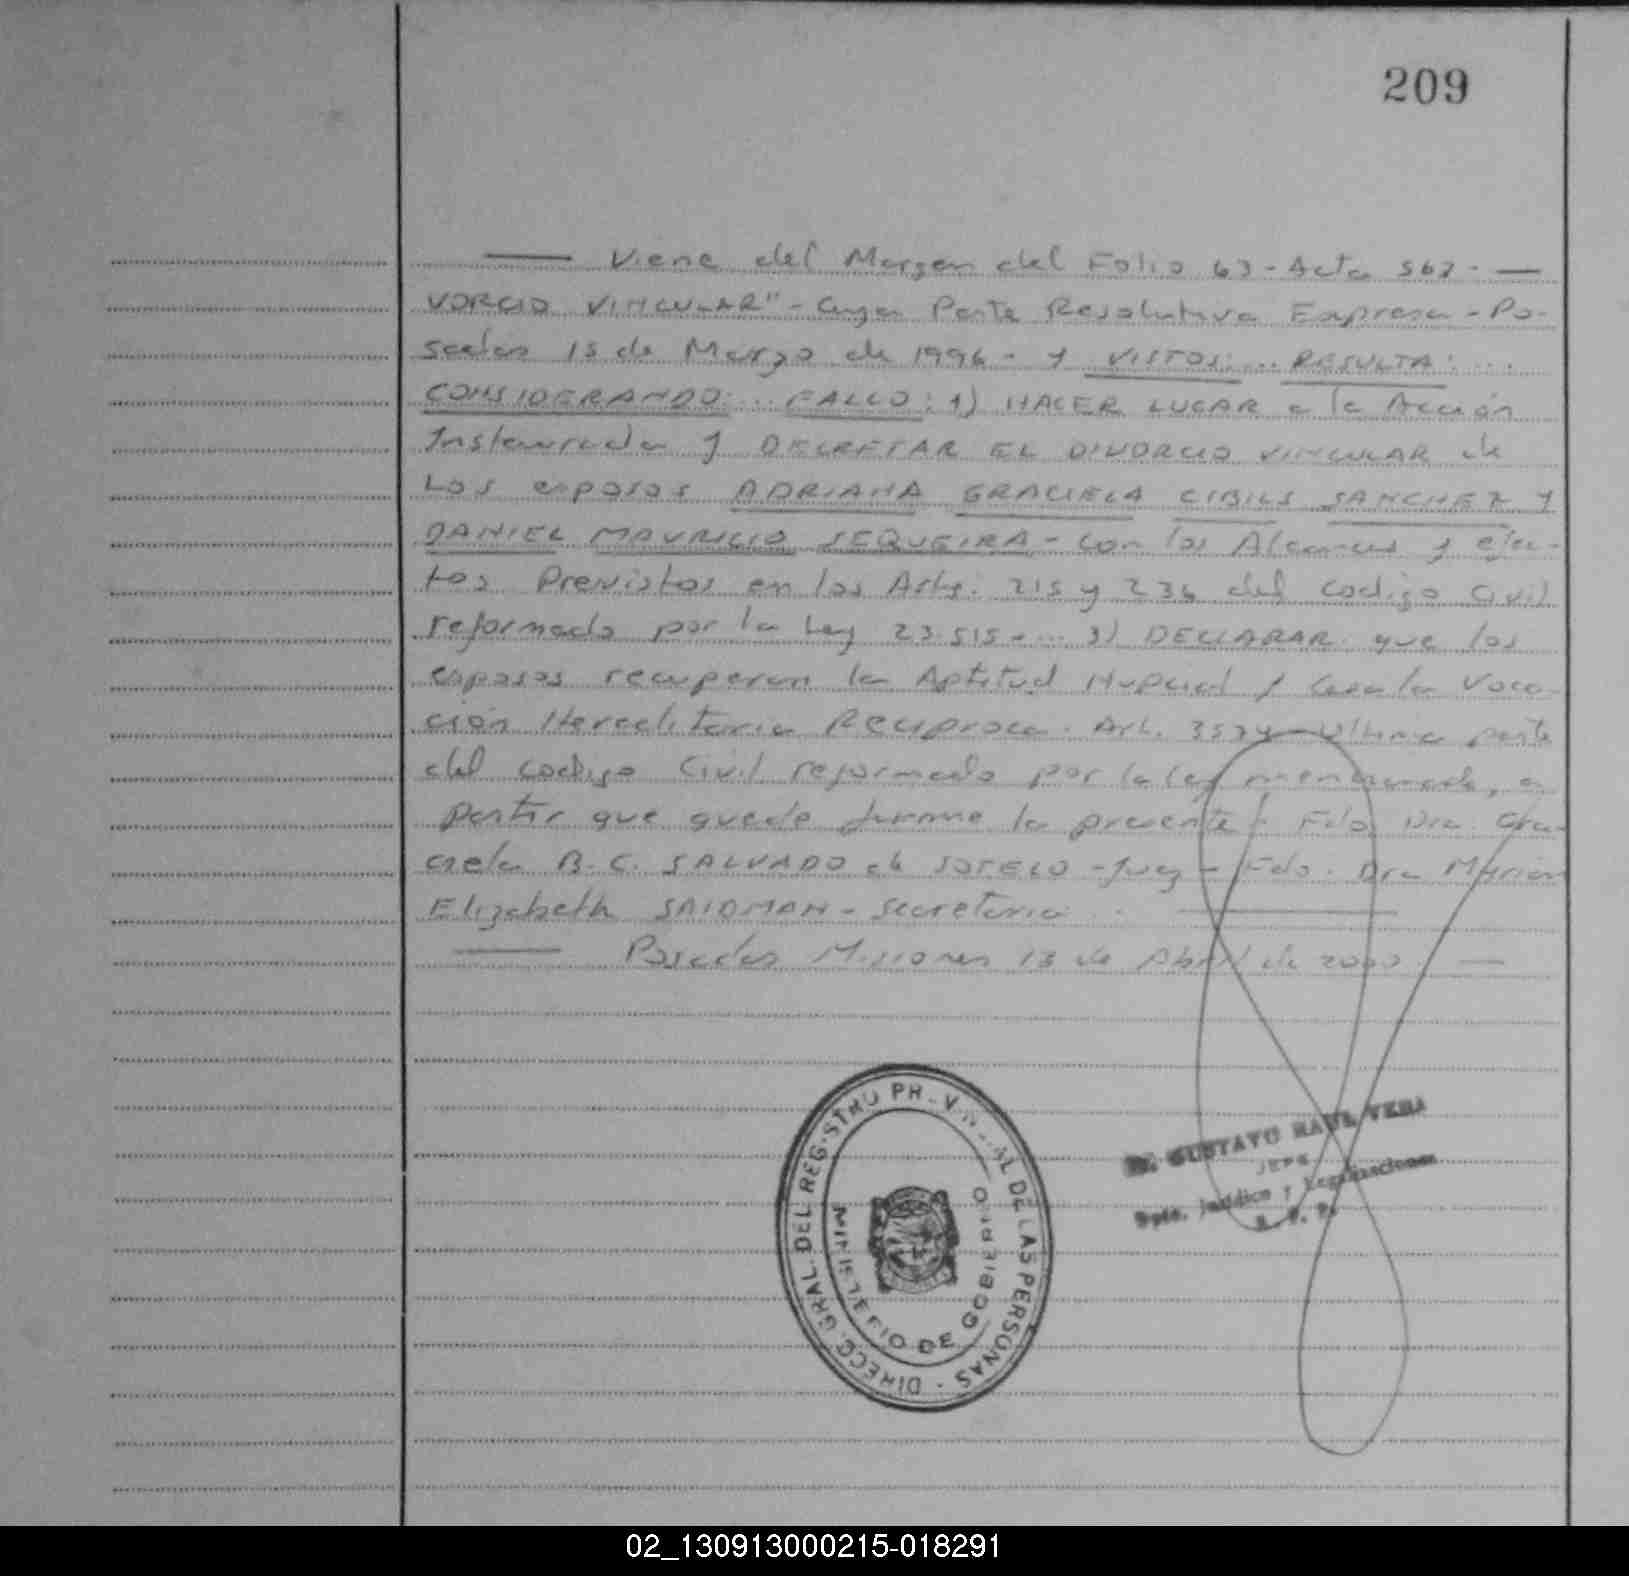 209
Viene del Margen del Folio 63 - Acta 567 -
VORCIO VINCULAR" - Cuya Parte Resolutiva Expresa - Po-
sadas 15 de Marzo de 1996 - y VISTOS: ... RESULTA: ...
CONSIDERANDO: ... FALLO: 1) HACER LUGAR a la Acción
Instaurada y DECRETAR EL DIVORCIO VINCULAR de
Los esposos ADRIANA GRACIELA CIBILS SANCHEZ Y
DANIEL MAURICIO SEQUEIRA - con los Alcances y efec-
tos Previstos en los Arts. 215 y 236 del Codigo Civil
reformado por la Ley 23.515 - ... 3) DECLARAR que los
esposos recuperan la Aptitud Nupcial y Cesa la Voca-
ción Hereditaria Reciproca. Art. 3574 - Ultima parte
del Codigo Civil reformado por la Ley mencionada, a
partir que quede firme la presente - Fdo. Dra. Gra-
ciela B. C. SALVADO de SOTELO - Juez - Fdo. Dra Myrian
Elizabeth SAIDMAN - Secretaria
Posadas Misiones 13 de Abril de 2000
DIRECC. GRAL. DEL REGISTRO PROVINCIAL DE LAS PERSONAS
MINISTERIO DE GOBIERNO
GUSTAVO RAUL VERA
JEFE
Dpto. Jurídico y Legalizaciones
R. P. P.
02_130913000215-018291